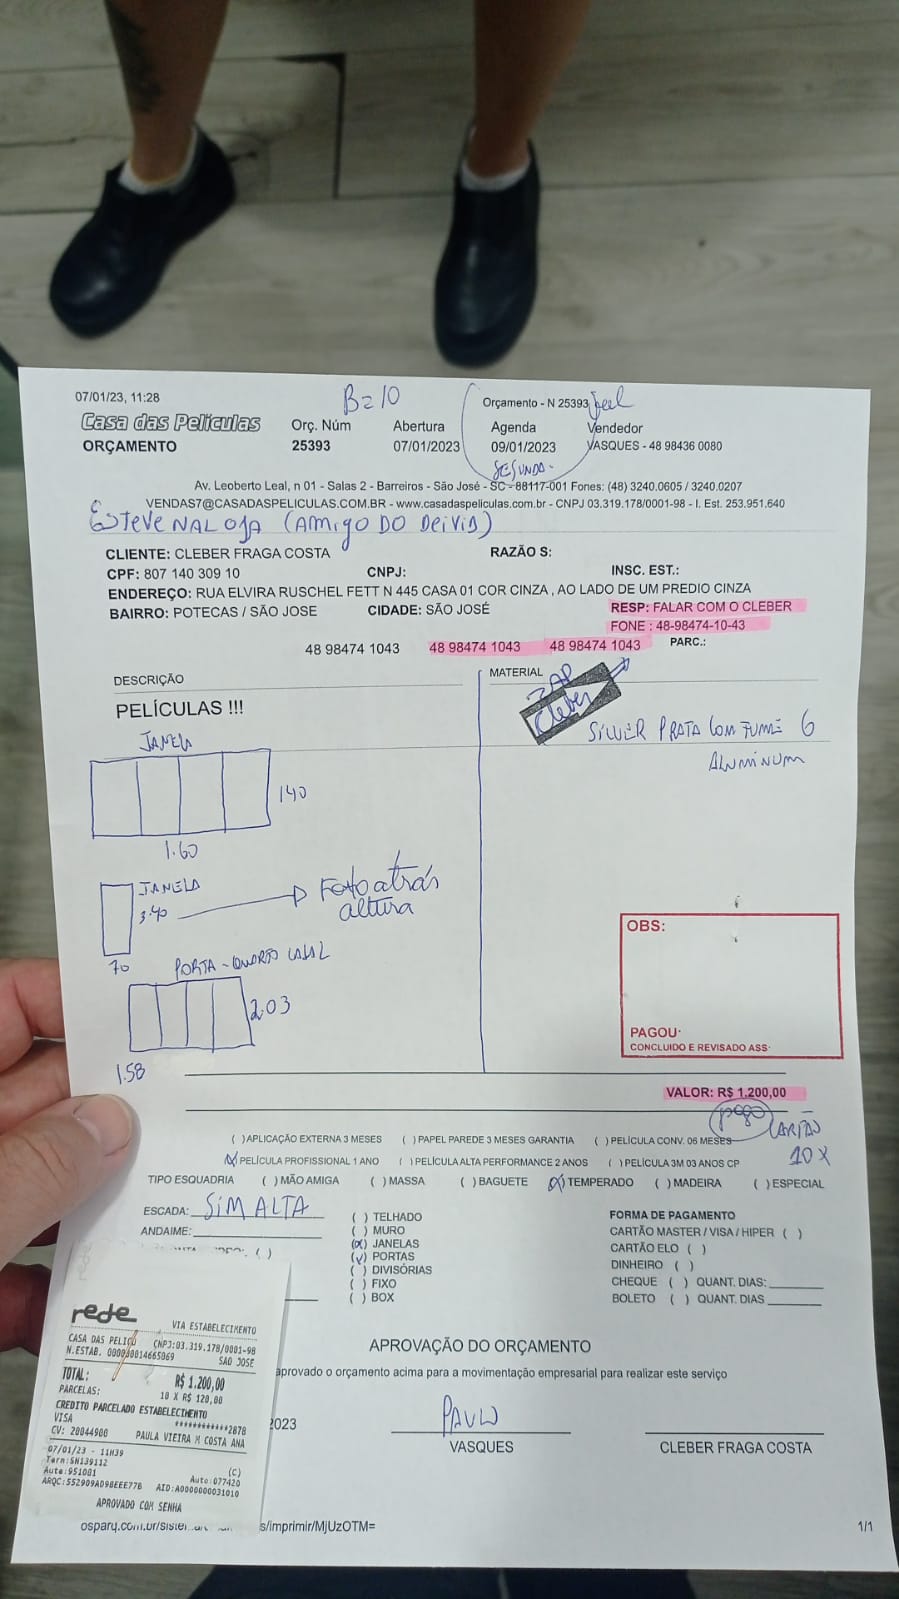 07/01/23, 11:28
B=10
Orçamento - N 25393
Casa das Películas
Orç. Núm
Abertura
Agenda
Vendedor
ORÇAMENTO
25393
07/01/2023
09/01/2023
VASQUES - 48 98436 0080
SEGUNDA-
Av. Leoberto Leal, n 01 - Salas 2 - Barreiros - São José - SC - 88117-001 Fones: (48) 3240.0605 / 3240.0207
VENDAS7@CASADASPELICULAS.COM.BR - www.casadaspeliculas.com.br - CNPJ 03.319.178/0001-98 - I. Est. 253.951.640
ESTEVE NA LOJA (AMIGO DO DEIVID)
CLIENTE: CLEBER FRAGA COSTA
RAZÃO S:
CPF: 807 140 309 10
CNPJ:
INSC. EST.:
ENDEREÇO: RUA ELVIRA RUSCHEL FETT N 445 CASA 01 COR CINZA , AO LADO DE UM PREDIO CINZA
BAIRRO: POTECAS / SÃO JOSE
CIDADE: SÃO JOSÉ
RESP: FALAR COM O CLEBER
FONE : 48-98474-10-43
48 98474 1043
48 98474 1043
48 98474 1043
PARC.:
DESCRIÇÃO
MATERIAL
ZAP
Cleber
PELÍCULAS !!!
SILVER PRATA COM FUMÊ G
ALUMINUM
JANELA
140
1.60
JANELA
3.40
Foto atrás
altura
70
PORTA - QUARTO CASAL
2.03
1.58
OBS:
PAGOU:
CONCLUIDO E REVISADO ASS:
VALOR: R$ 1.200,00
pago
CARTÃO
10X
( ) APLICAÇÃO EXTERNA 3 MESES ( ) PAPEL PAREDE 3 MESES GARANTIA ( ) PELÍCULA CONV. 06 MESES
(X) PELÍCULA PROFISSIONAL 1 ANO ( ) PELÍCULA ALTA PERFORMANCE 2 ANOS ( ) PELÍCULA 3M 03 ANOS CP
TIPO ESQUADRIA ( ) MÃO AMIGA ( ) MASSA ( ) BAGUETE (X) TEMPERADO ( ) MADEIRA ( ) ESPECIAL
ESCADA: SIM ALTA
ANDAIME:
( ) TELHADO
( ) MURO
(X) JANELAS
(V) PORTAS
( ) DIVISÓRIAS
( ) FIXO
( ) BOX
FORMA DE PAGAMENTO
CARTÃO MASTER / VISA / HIPER ( )
CARTÃO ELO ( )
DINHEIRO ( )
CHEQUE ( ) QUANT. DIAS:
BOLETO ( ) QUANT. DIAS
APROVAÇÃO DO ORÇAMENTO
aprovado o orçamento acima para a movimentação empresarial para realizar este serviço
2023
PAULO
VASQUES
CLEBER FRAGA COSTA
rede
VIA ESTABELECIMENTO
CASA DAS PELICU CNPJ:03.319.178/0001-98
N.ESTAB. 000000014665069 SAO JOSE
TOTAL: R$ 1.200,00
PARCELAS: 10 X R$ 120,00
CREDITO PARCELADO ESTABELECIMENTO
VISA ************2878
CV: 20044900 PAULA VIEIRA M COSTA ANA
07/01/23 - 11H39
Term:SN139112 (C)
Aute:951081 Auto:077420
ARQC:552909AD98EEE77B AID:A0000000031010
APROVADO COM SENHA
s/imprimir/MjUzOTM=
1/1